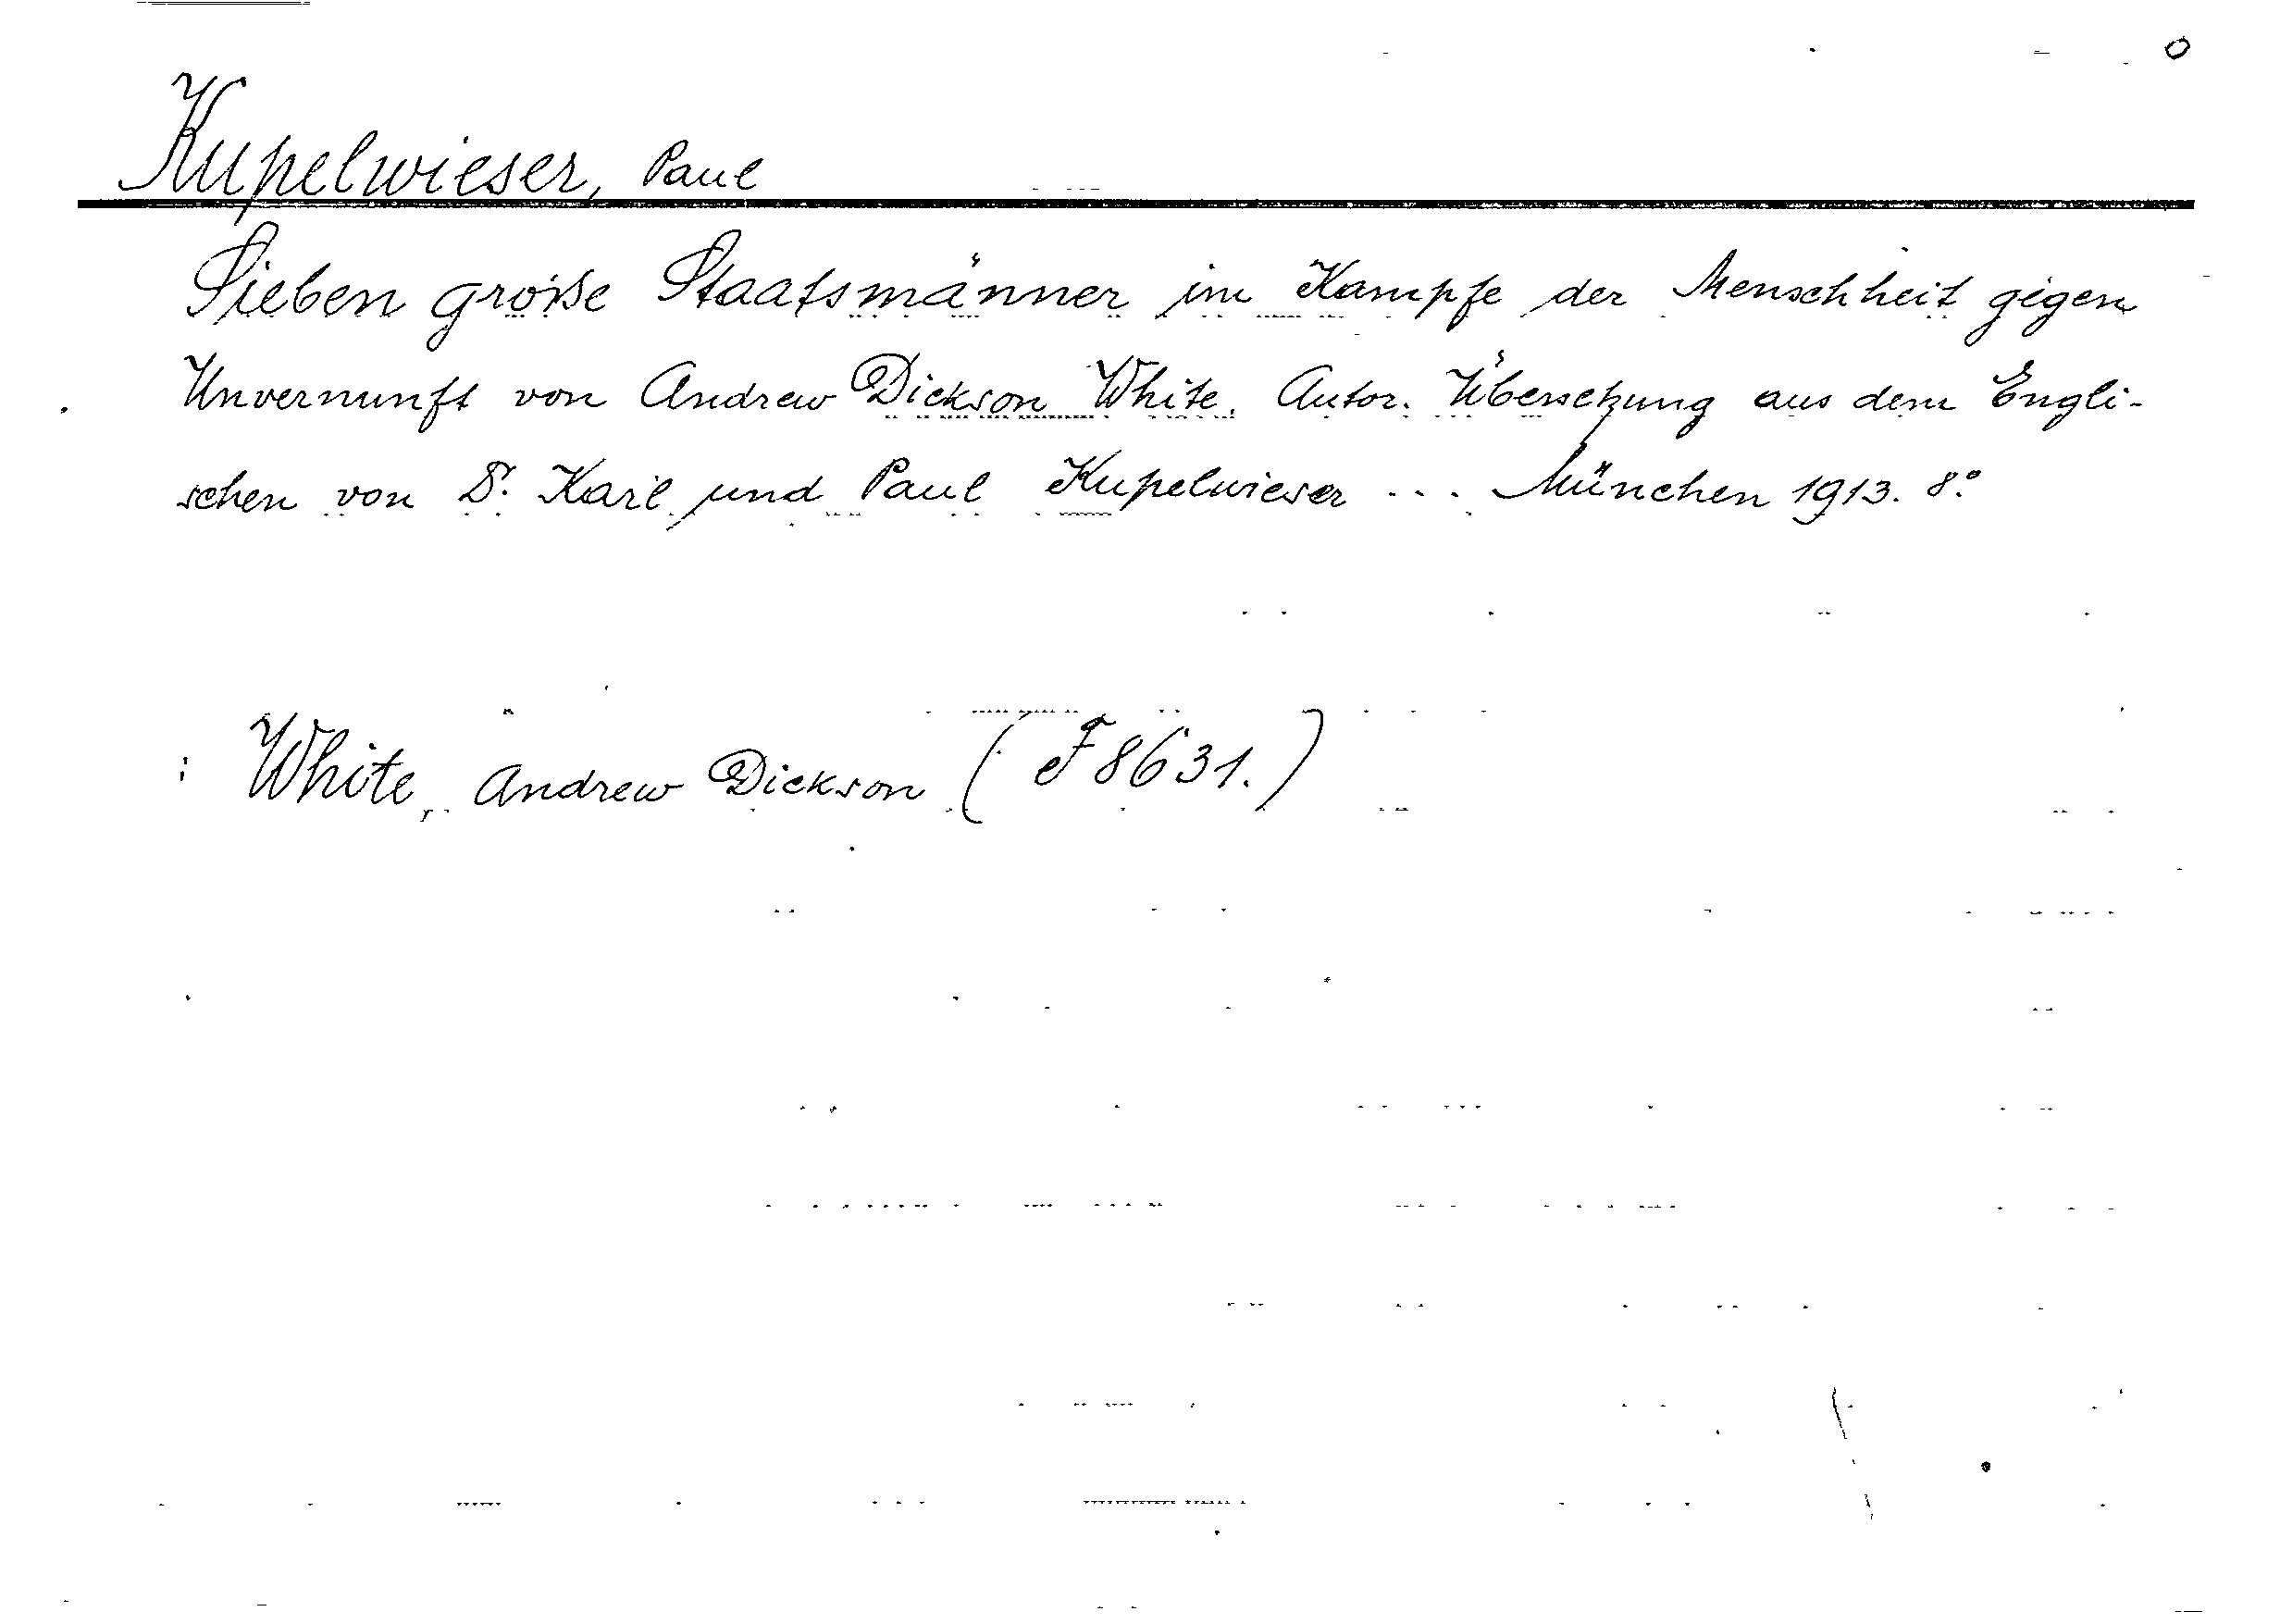 Kupelwieser, Paul
Sieben große Staatsmänner im Kampfe der Menschheit gegen
Unvernunft von Andrew Dickson White. Autor. Übersetzung aus dem Engli-
schen von Dr. Karl und Paul Kupelwieser ... München 1913. 8.°
: White, Andrew Dickson (F 8631.)